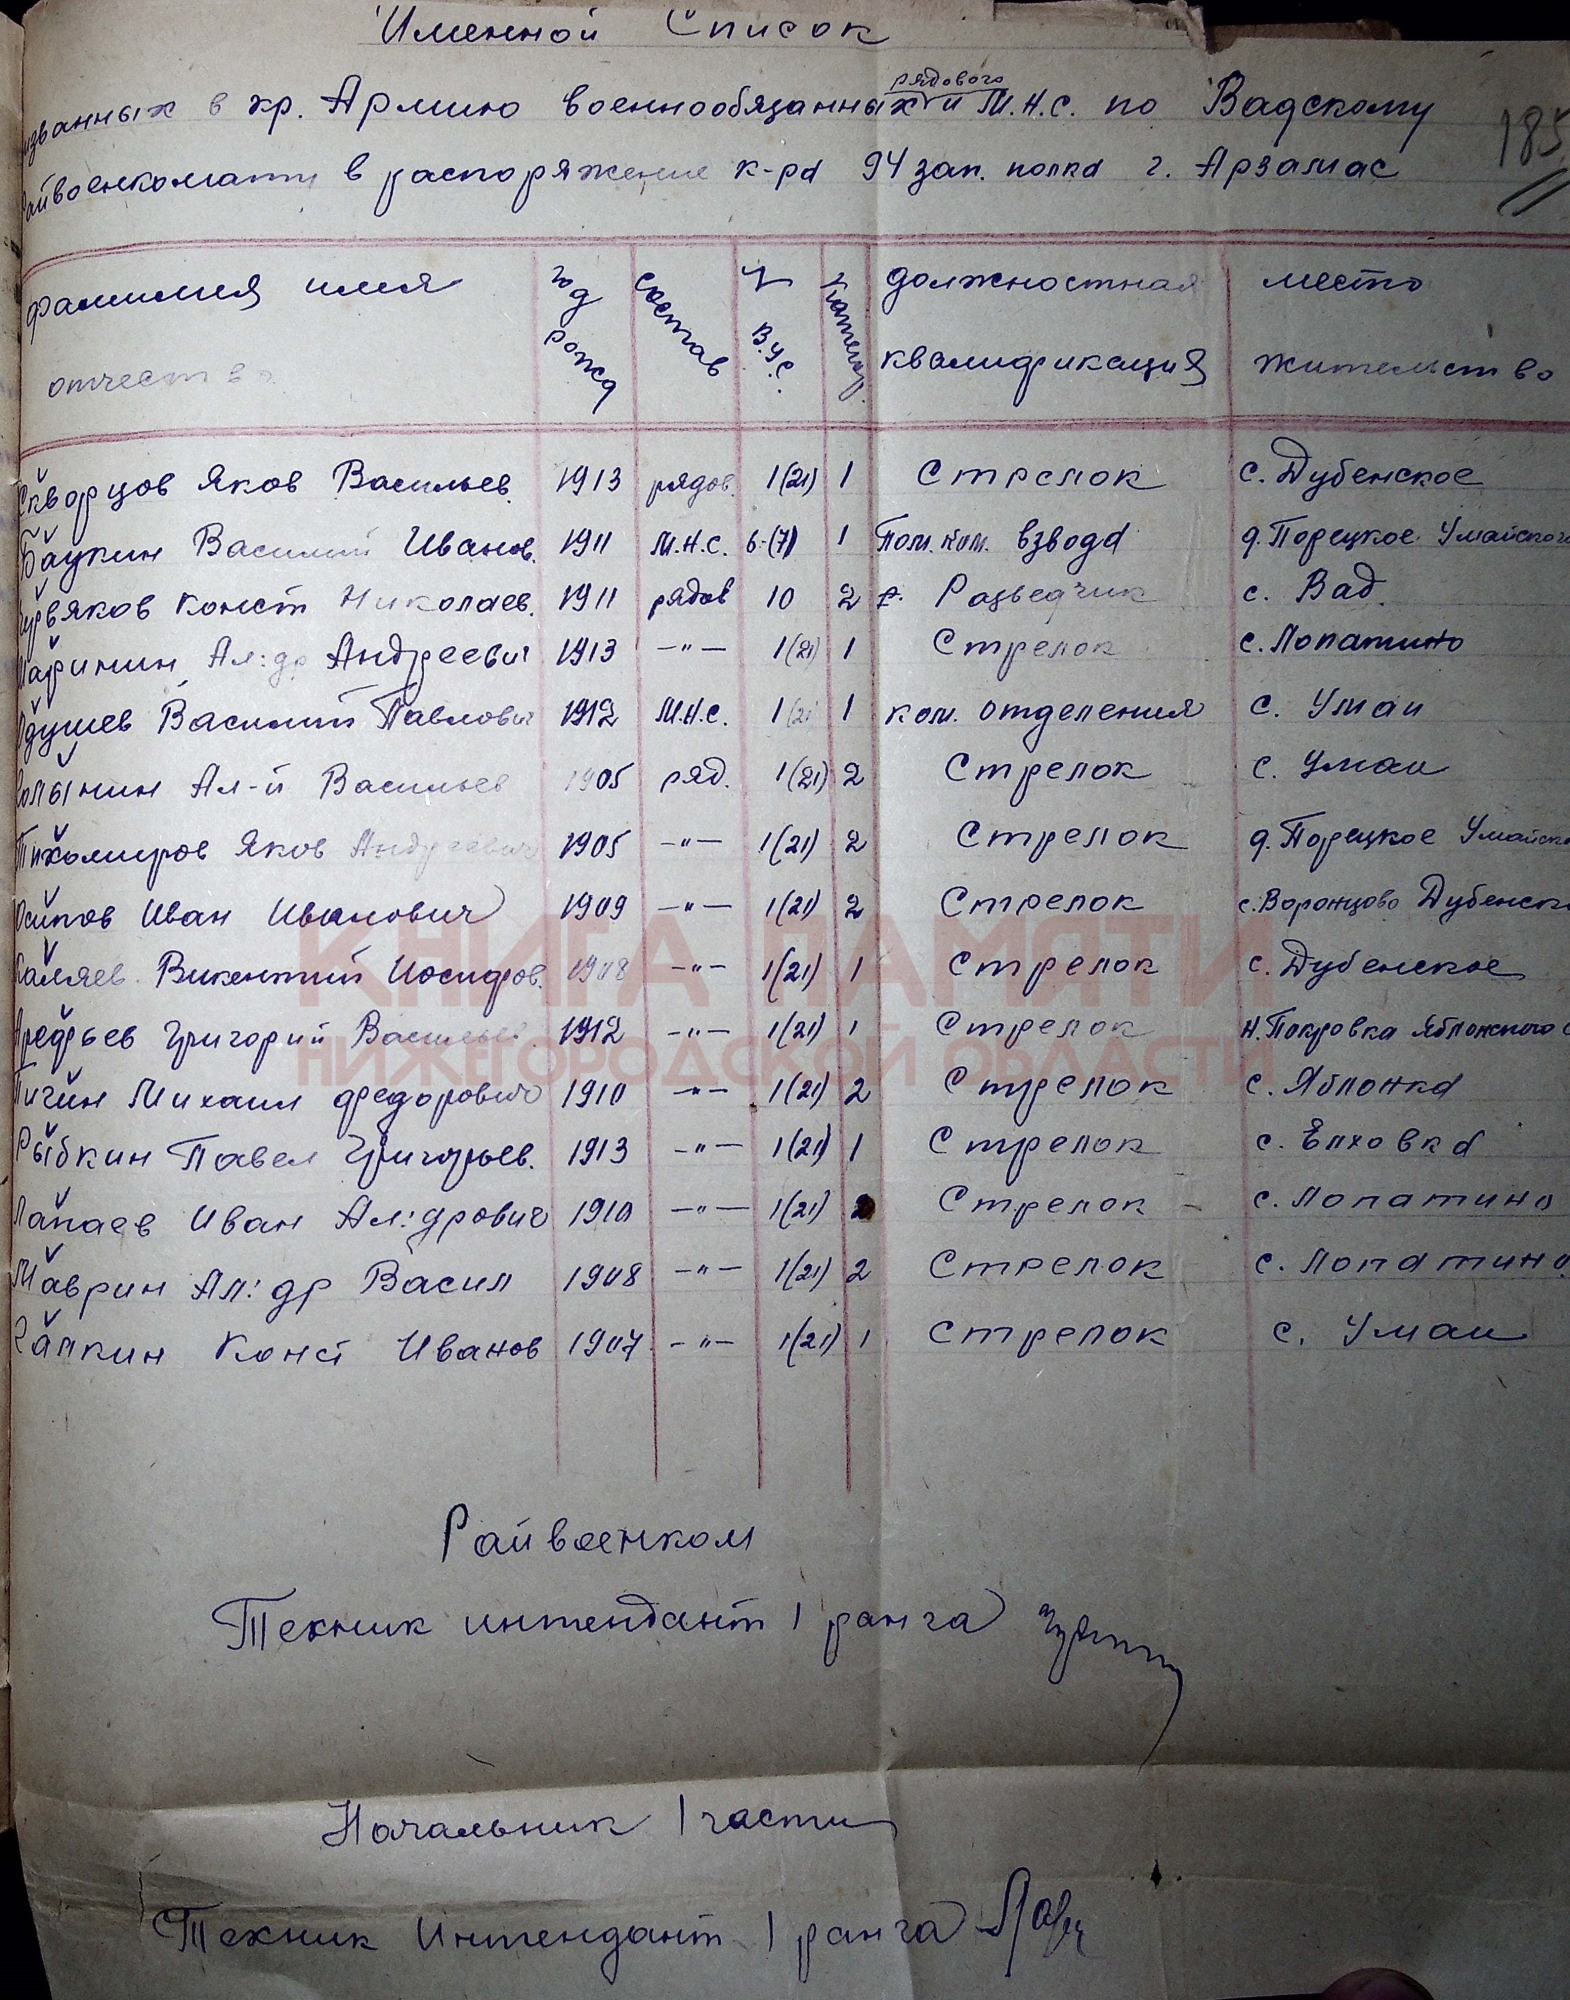 Именной Список
рядового
званных в кр. Армию военнообязанных и М.Н.С. по Вадскому
185
айвоенкомату в распоряжение к-ра 94 зап. полка г. Арзамас
фамилия имя год рожд состав № В.У.С. категор. должностная место
отчество квалификация жительство
Скворцов Яков Васильев. 1913 рядов. 1(21) 1 Стрелок с. Дубенское
Баукин Василий Иванов. 1911 М.Н.С. 6-(7) 1 Пом. ком. взвода д. Порецкое Умайского
ервяков Конст Николаев. 1911 рядов 10 2 Разведчик с. Вад.
Ал:др Андреевич 1913 -"- 1(21) 1 Стрелок с. Лопатино
душев Василий Павлович 1912 М.Н.С. 1(21) 1 ком. отделения с. Умаи
Ал-й Васильев 1905 ряд. 1(21) 2 Стрелок с. Умаи
Тихомиров Яков Андреевич 1905 -"- 1(21) 2 Стрелок д. Порецкое Умайско
Осипов Иван Иванович 1909 -"- 1(21) 2 Стрелок с. Воронцово Дубенск
аляев Викентий Иосифов. 1908 -"- 1(21) 1 Стрелок с. Дубенское
Арефьев Григорий Васильев. 1912 -"- 1(21) 1 Стрелок Н. Покровка Яблонского С
Пичин Михаил Федорович 1910 -"- 1(21) 2 Стрелок с. Яблонка
Рыбкин Павел Григорьев. 1913 -"- 1(21) 1 Стрелок с. Елховка
Лапаев Иван Ал:дрович 1910 -"- 1(21) 2 Стрелок - с. Лопатино
Маврин Ал:др Васил 1908 -"- 1(21) 2 Стрелок с. Лопатино
апкин Конст Иванов 1907 -"- 1(21) 1 Стрелок с. Умаи
КНИГА ПАМЯТИ
НИЖЕГОРОДСКОЙ ОБЛАСТИ
Райвоенком
Техник интендант 1 ранга
Начальник 1 части
Техник Интендант 1 ранга